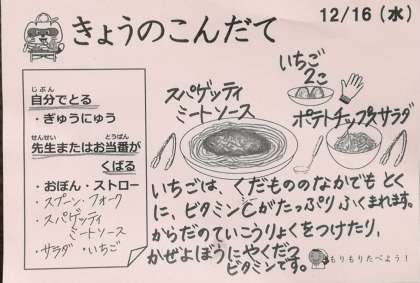 きょうのこんだて
12/16(水)
じぶん
自分でとる
・ぎゅうにゅう
せんせい とうばん
先生またはお当番が
くばる
・おぼん・ストロー
・スプーン・フォーク
・スパゲッティ
ミートソース
・サラダ ・いちご
スパゲッティ
ミートソース
いちご
2こ
ポテトチップスサラダ
いちごは、くだもののなかでもとく
に、ビタミンCがたっぷりふくまれます。
からだのていこうりょくをつけたり、
かぜよぼうにやくだつ
ビタミンです。
もりもりたべよう!